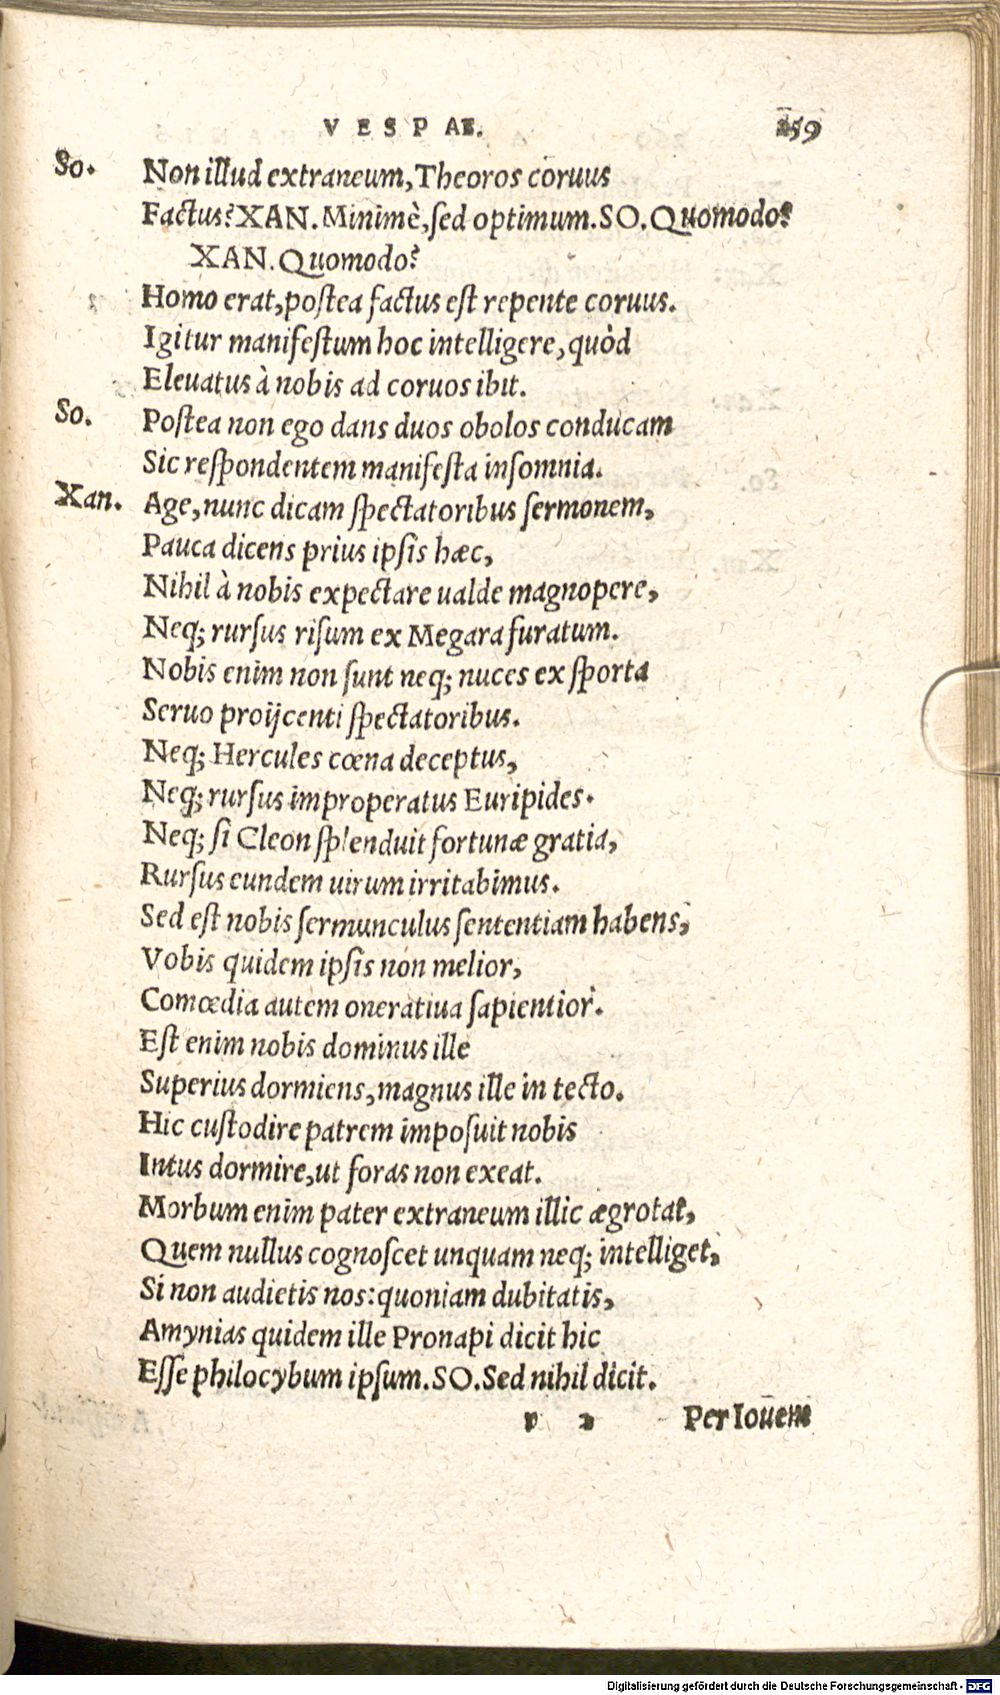 VESPAE. 259
So. Non illud extraneum, Theoros coruus
Factus? XAN. Minimè, sed optimum. SO. Quomodo?
XAN. Quomodo?
Homo erat, postea factus est repente coruus.
Igitur manifestum hoc intelligere, quòd
Eleuatus à nobis ad coruos ibit.
So. Postea non ego dans duos obolos conducam
Sic respondentem manifesta insomnia.
Xan. Age, nunc dicam spectatoribus sermonem,
Pauca dicens prius ipsis hæc,
Nihil à nobis expectare ualde magnopere,
Neq; rursus risum ex Megara furatum.
Nobis enim non sunt neq; nuces ex sporta
Seruo proijcenti spectatoribus.
Neq; Hercules cœna deceptus,
Neq; rursus improperatus Euripides.
Neq; si Cleon splenduit fortunæ gratia,
Rursus eundem uirum irritabimus.
Sed est nobis sermunculus sententiam habens,
Vobis quidem ipsis non melior,
Comœdia autem oneratiua sapientior.
Est enim nobis dominus ille
Superius dormiens, magnus ille in tecto.
Hic custodire patrem imposuit nobis
Intus dormire, ut foras non exeat.
Morbum enim pater extraneum illic ægrotat,
Quem nullus cognoscet unquam neq; intelliget,
Si non audietis nos: quoniam dubitatis,
Amynias quidem ille Pronapi dicit hic
Esse philocybum ipsum. SO. Sed nihil dicit.
p 2 Per Iouem
Digitalisierung gefördert durch die Deutsche Forschungsgemeinschaft - DFG